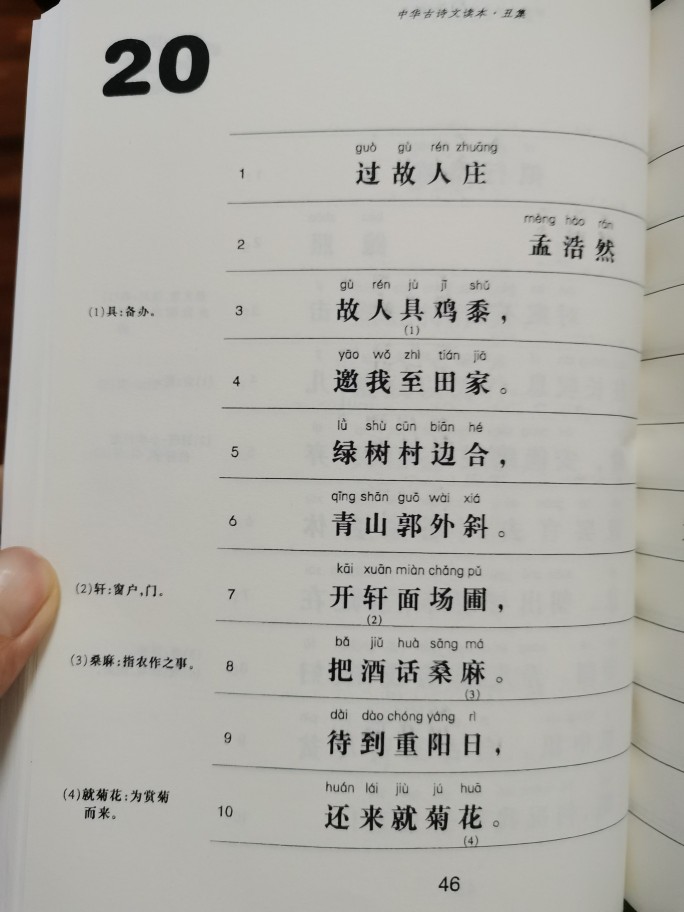 中华古诗文读本·丑集
20
guò gù rén zhuāng
1 过故人庄
mèng hào rán
2 孟浩然
gù rén jù jī shǔ
(1)具:备办。 3 故人具鸡黍,
(1)
yāo wǒ zhì tián jiā
4 邀我至田家。
lǜ shù cūn biān hé
5 绿树村边合,
qīng shān guō wài xiá
6 青山郭外斜。
kāi xuān miàn chǎng pǔ
(2)轩:窗户,门。 7 开轩面场圃,
(2)
bǎ jiǔ huà sāng má
(3)桑麻:指农作之事。 8 把酒话桑麻。
(3)
dài dào chóng yáng rì
9 待到重阳日,
huán lái jiù jú huā
(4)就菊花:为赏菊
而来。
10 还来就菊花。
(4)
46